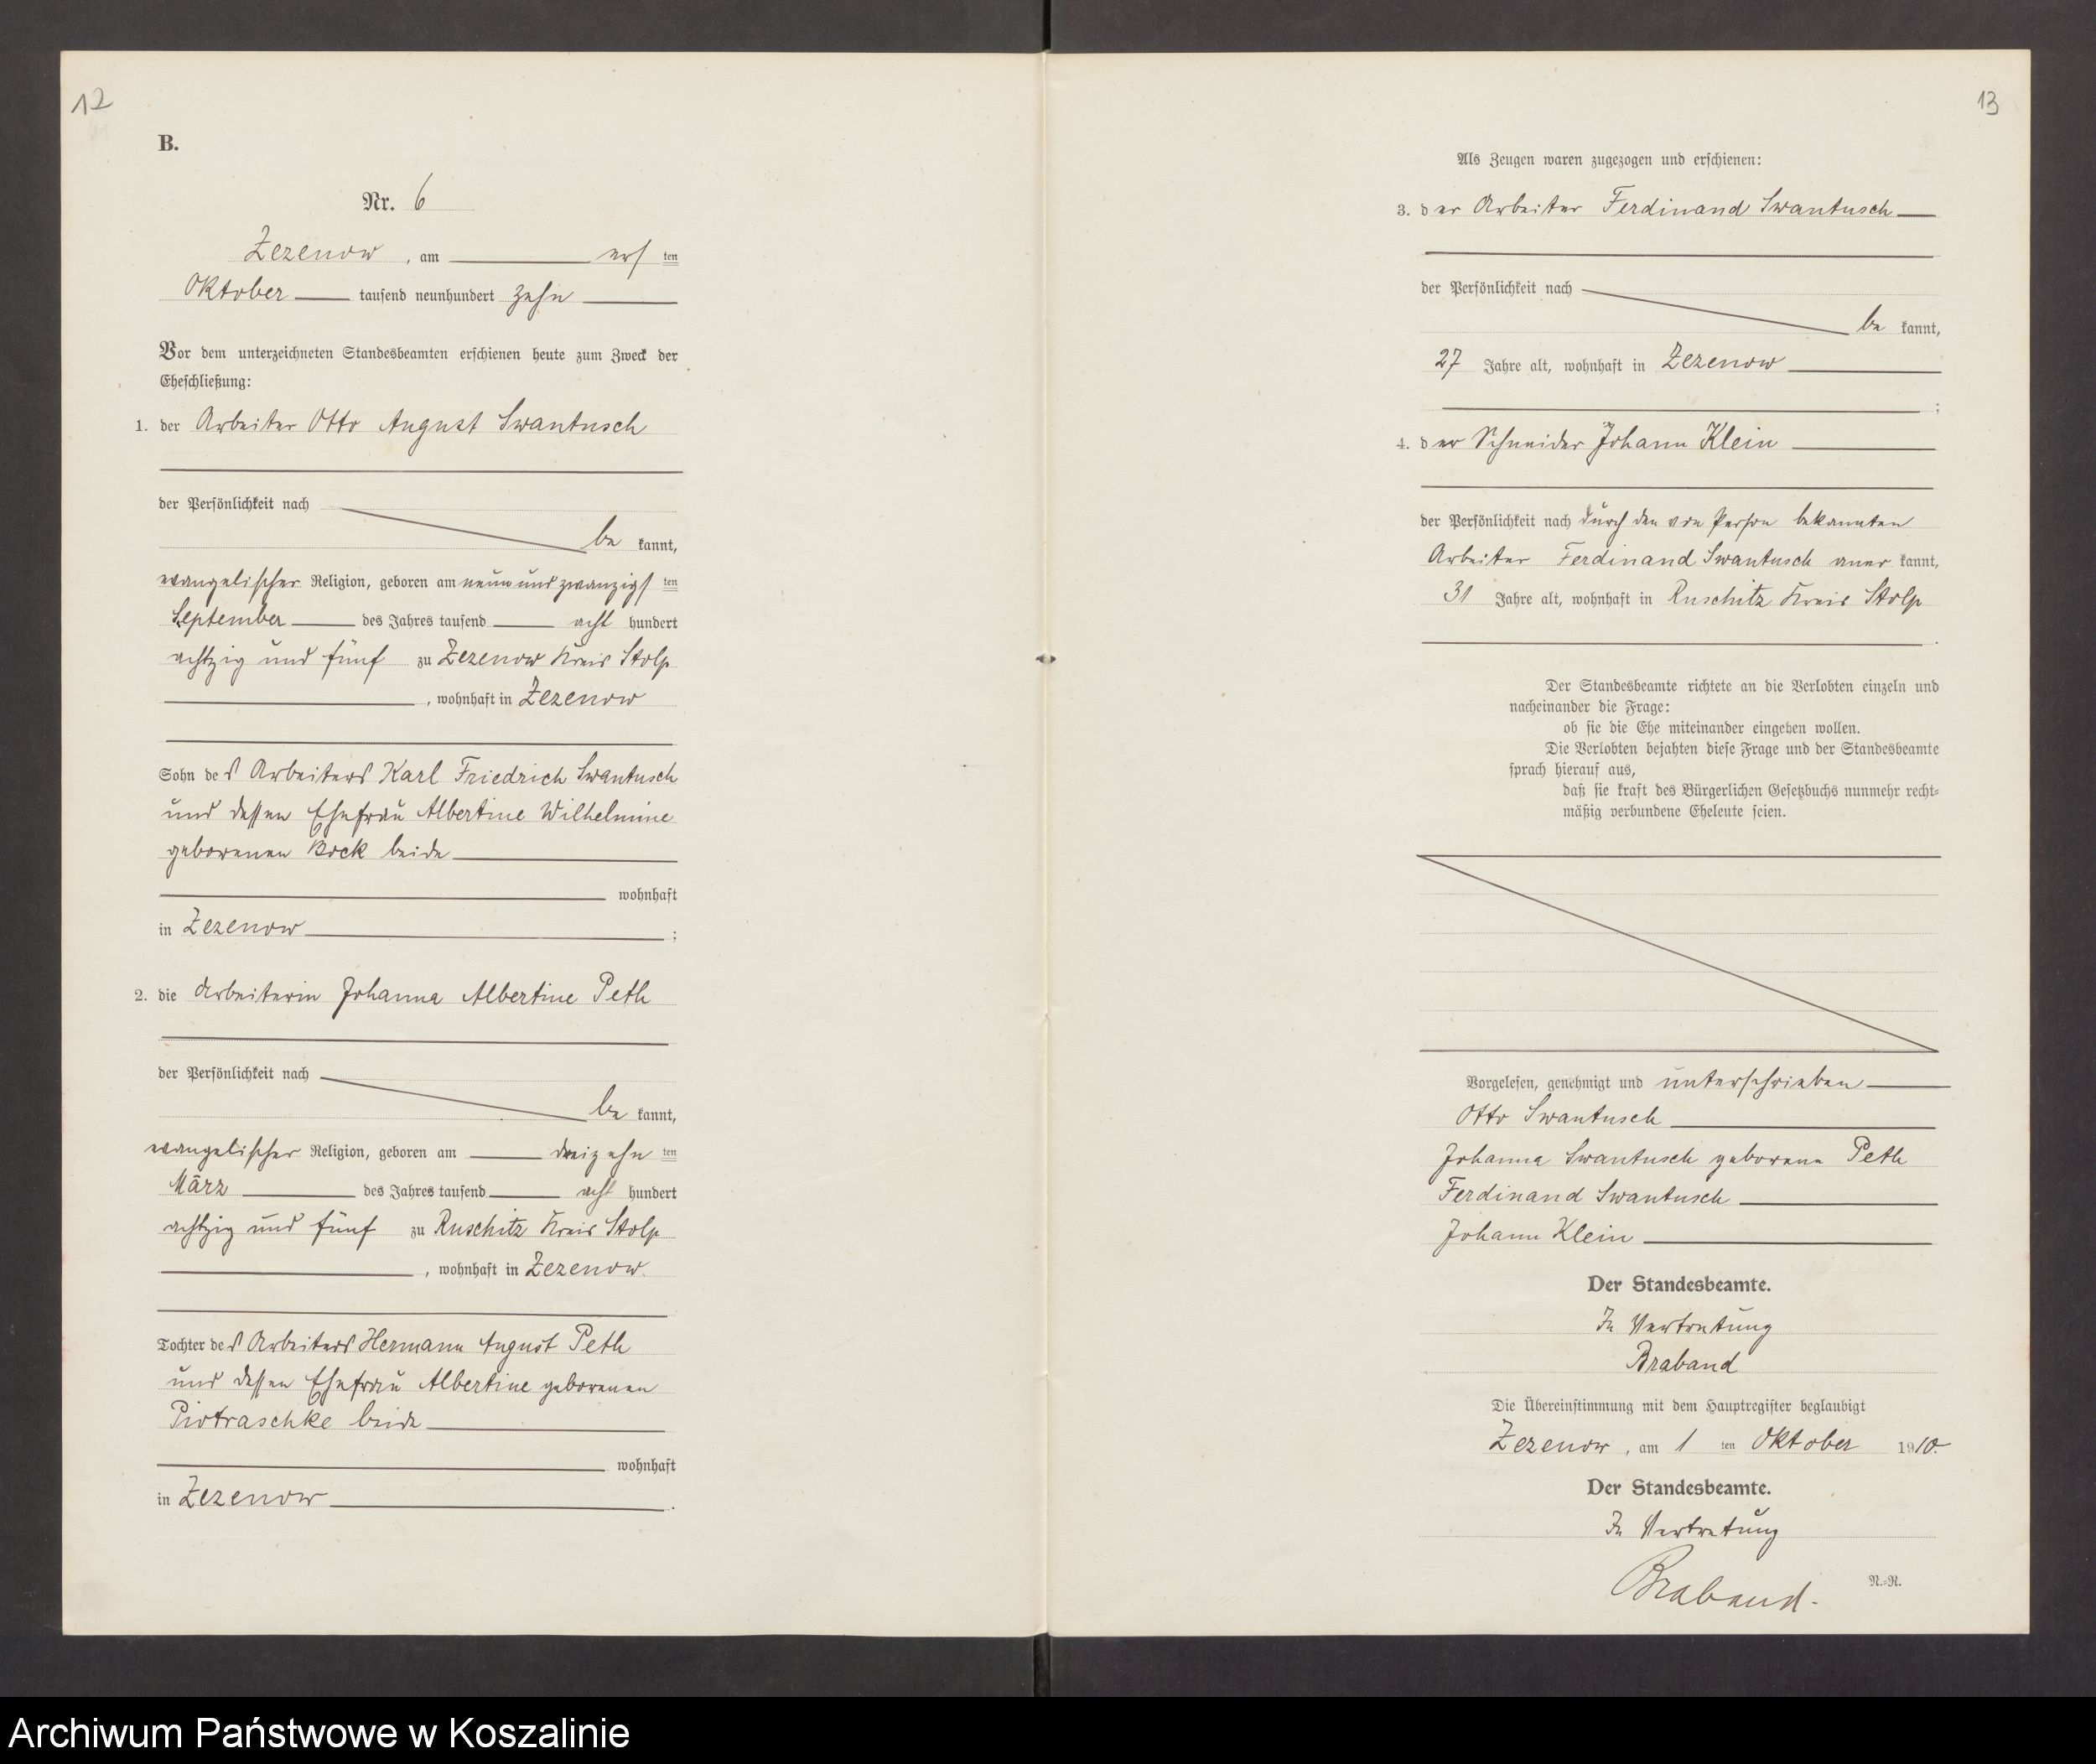 12
B.
Nr. 6
Zezenow, am ersten
Oktober tausend neunhundert zehn
Vor dem unterzeichneten Standesbeamten erschienen heute zum Zweck der
Eheschließung:
1. der Arbeiter Otto August Swantusch
der Persönlichkeit nach
bekannt,
evangelischer Religion, geboren am neunundzwanzigsten
September des Jahres tausend acht hundert
achtzig und fünf zu Zezenow Kreis Stolp
, wohnhaft in Zezenow
Sohn des Arbeiters Karl Friedrich Swantusch
und dessen Ehefrau Albertine Wilhelmine
geborenen Bock beide
wohnhaft
in Zezenow ;
2. die Arbeiterin Johanna Albertine Peth
der Persönlichkeit nach
bekannt,
evangelischer Religion, geboren am dreizehnten
März des Jahres tausend acht hundert
achtzig und fünf zu Ruschitz Kreis Stolp
, wohnhaft in Zezenow.
Tochter des Arbeiters Hermann August Peth
und dessen Ehefrau Albertine geborenen
Piotraschke beide
wohnhaft
in Zezenow .
13
Als Zeugen waren zugezogen und erschienen:
3. der Arbeiter Ferdinand Swantusch
der Persönlichkeit nach
bekannt,
27 Jahre alt, wohnhaft in Zezenow
;
4. der Schneider Johann Klein
der Persönlichkeit nach durch den von Person bekannten
Arbeiter Ferdinand Swantusch anerkannt,
31 Jahre alt, wohnhaft in Ruschitz Kreis Stolp
.
Der Standesbeamte richtete an die Verlobten einzeln und
nacheinander die Frage:
ob sie die Ehe miteinander eingehen wollen.
Die Verlobten bejahten diese Frage und der Standesbeamte
sprach hierauf aus,
daß sie kraft des Bürgerlichen Gesetzbuchs nunmehr recht-
mäßig verbundene Eheleute seien.
Vorgelesen, genehmigt und unterschrieben
Otto Swantusch
Johanna Swantusch geborene Peth
Ferdinand Swantusch
Johann Klein
Der Standesbeamte.
In Vertretung
Braband
Die Übereinstimmung mit dem Hauptregister beglaubigt
Zezenow, am 1 ten Oktober 1910.
Der Standesbeamte.
In Vertretung
Braband.
N.-R.
Archiwum Państwowe w Koszalinie